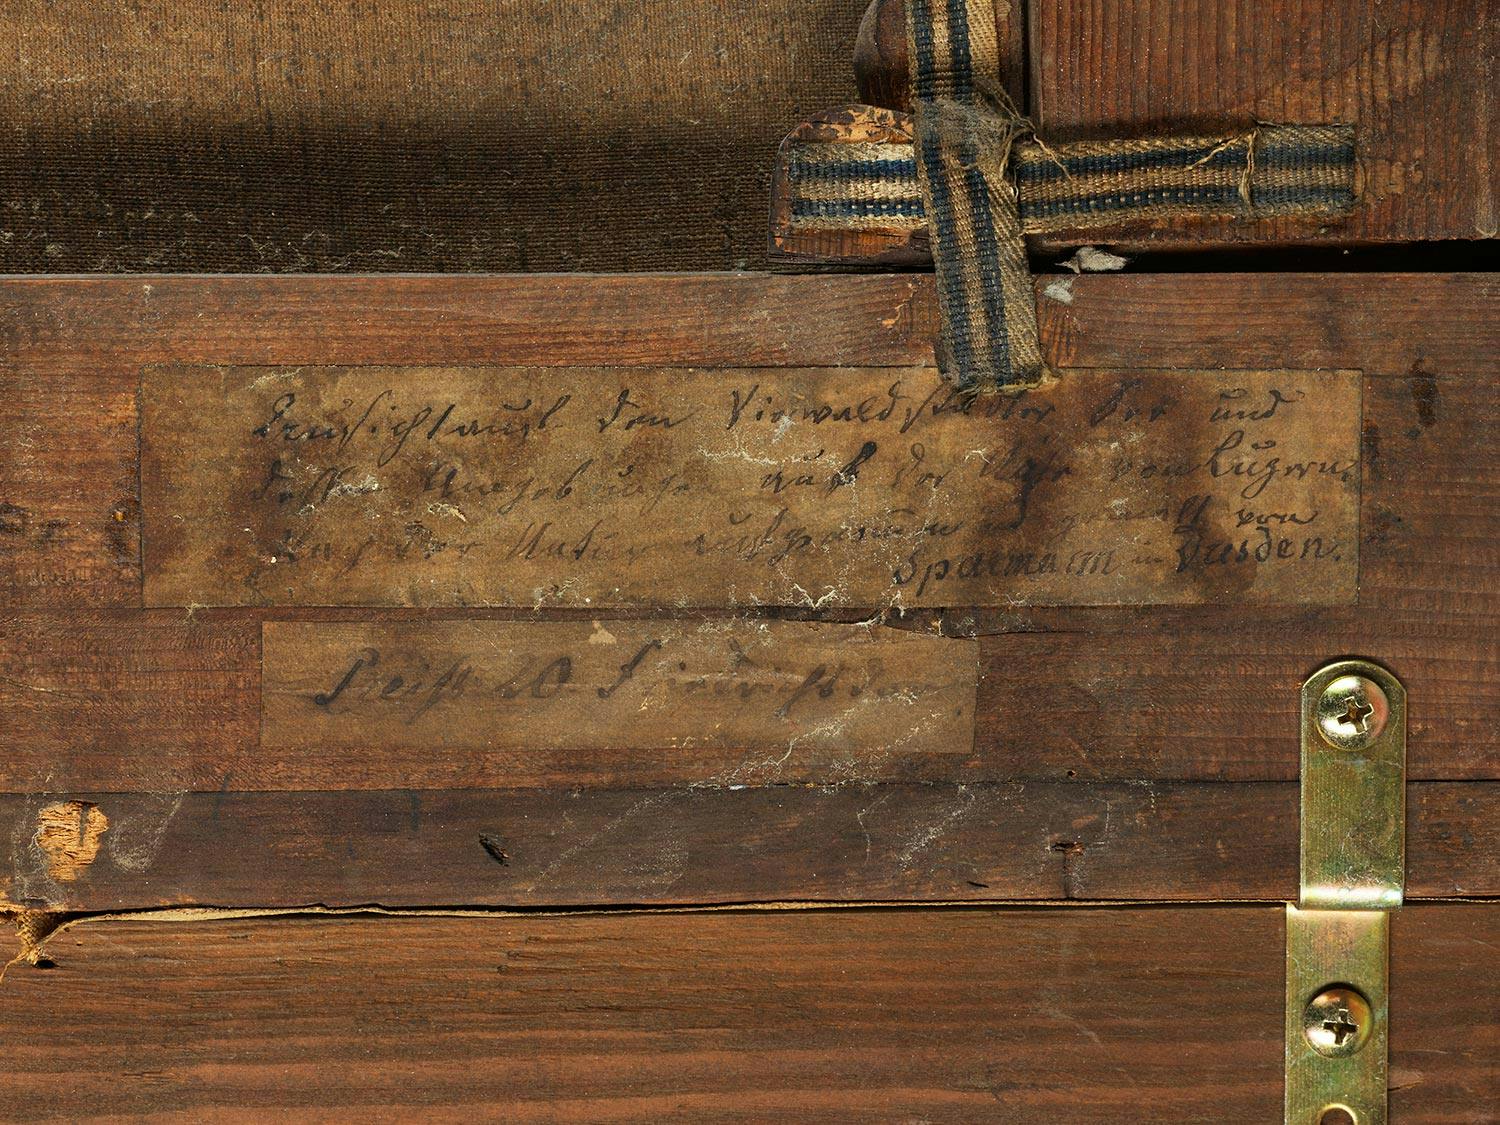 Aussicht auf den Vierwaldstädter See und
dessen Umgebungen aus der Nähe von Luzern,
Nach der Natur aufgenommen und gemalt von
Sparmann in Dresden.
Preiß 20 Friedrichsdor